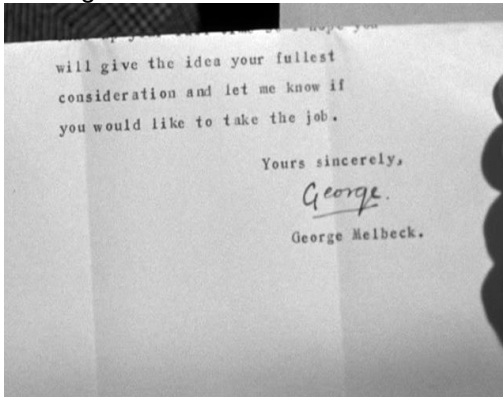 hope you
will give the idea your fullest
consideration and let me know if
you would like to take the job.
Yours sincerely,
George.
George Melbeck.